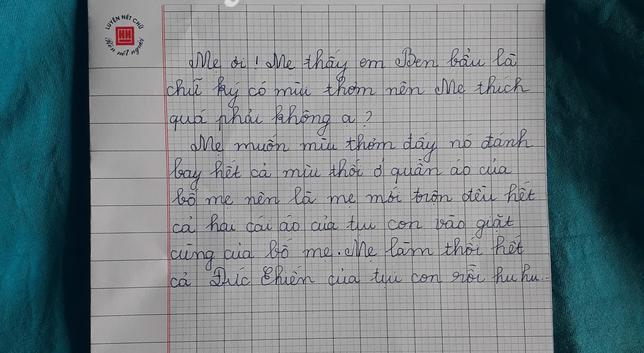 LUYỆN NÉT CHỮ
HH
Rèn nết người
Mẹ ơi! Mẹ thấy em Ben bẩu là
chữ ký có mìu thơm nên Mẹ thích
quá phải không ạ?
Mẹ muốn mìu thơm đấy nó đánh
bay hết cả mìu thối ở quần áo của
bố mẹ nên là mẹ mới trộn đều hết
cả hai cái áo của tụi con vào giặt
cùng của bố mẹ. Mẹ làm thối hết
cả Đức Chiên của tụi con rồi hu hu...